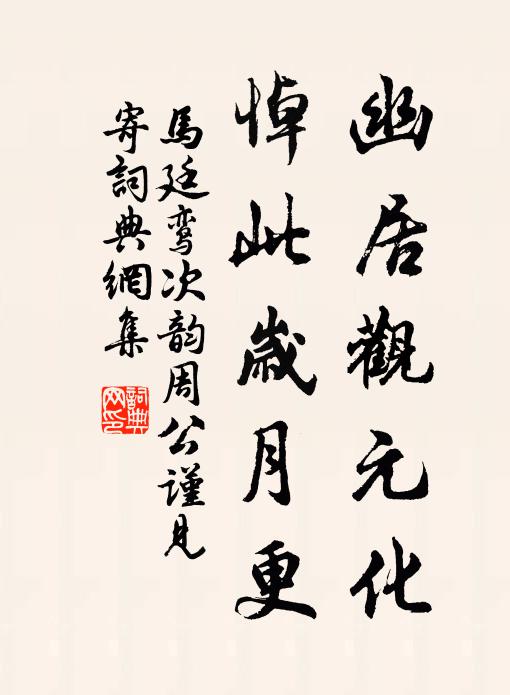 幽居觀元化
悼此歲月更
馬廷鸾次韵周公謹見
寄詞典網集
詞典
网印